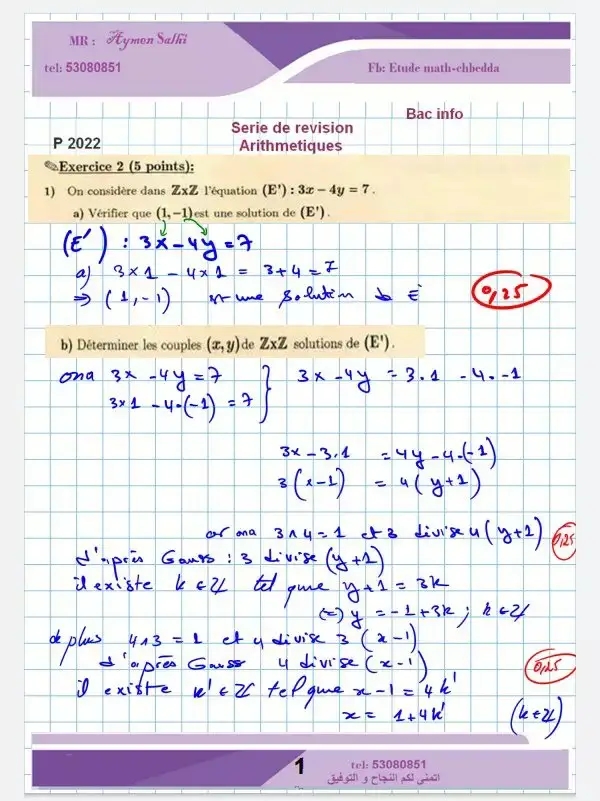 MR : Aymen Salhi
tel: 53080851
Fb: Etude math-chbedda
Bac info
Serie de revision
P 2022
Arithmetiques
✎Exercice 2 (5 points):
1) On considère dans ZxZ l'équation (E') : 3x − 4y = 7 .
a) Vérifier que (1,−1) est une solution de (E') .
(E') : 3x − 4y = 7
a) 3×1 − 4×1 = 3+4 = 7
⇒ (1,-1) est une solution de E'
0,25
b) Déterminer les couples (x, y) de ZxZ solutions de (E') .
ona 3x − 4y = 7 } 3x − 4y = 3.1 − 4.-1
3×1 − 4.(−1) = 7
3x − 3.1 = 4y − 4.(−1)
3(x−1) = 4(y+1)
or ona 3∧4 = 1 et 3 divise 4(y+1) 0,25
d'après Gauss : 3 divise (y+1)
il existe k∈Z tel que y+1 = 3k
(=) y = −1+3k ; k∈Z
de plus 4∧3 = 1 et 4 divise 3(x−1)
d'après Gauss 4 divise (x−1) 0,25
il existe k'∈Z tel que x−1 = 4k'
x = 1+4k' (k∈Z)
1
tel: 53080851
اتمنى لكم النجاح و التوفيق